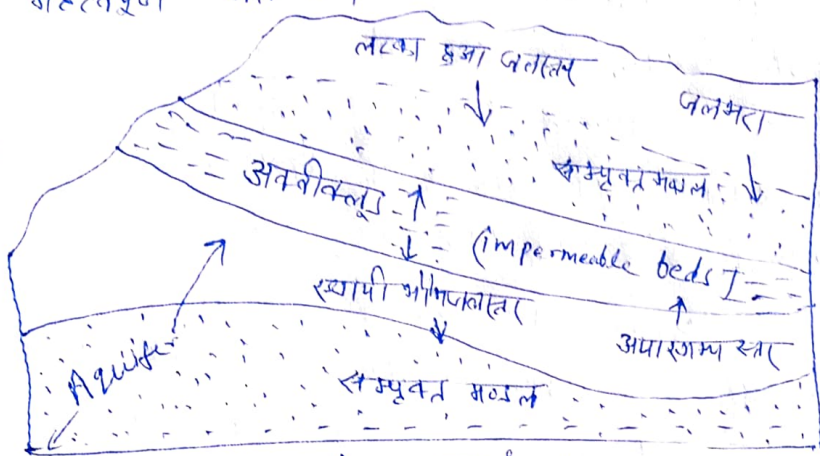 महत्वपूर्ण
लटका हुआ जलस्तर
जलभरा
सम्पृक्त मण्डल
अक्वीक्लूड
(impermeable beds I
स्थायी भौमजलस्तर
अपारगम्य स्तर
Aquifer
सम्पृक्त मण्डल